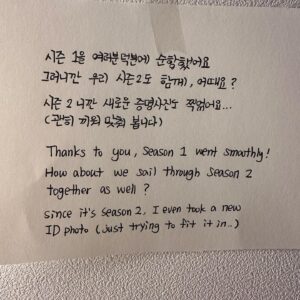 시즌 1을 여러분덕분에 순항했어요
그러니깐 우리 시즌2도 함께, 어때요?
시즌 2니깐 새로운 증명사진도 찍었어요...
(괜히 끼워 맞춰 봅니다)
Thanks to you, Season 1 went smoothly!
How about we sail through Season 2
together as well?
Since it's Season 2, I even took a new
ID photo (Just trying to fit it in..)